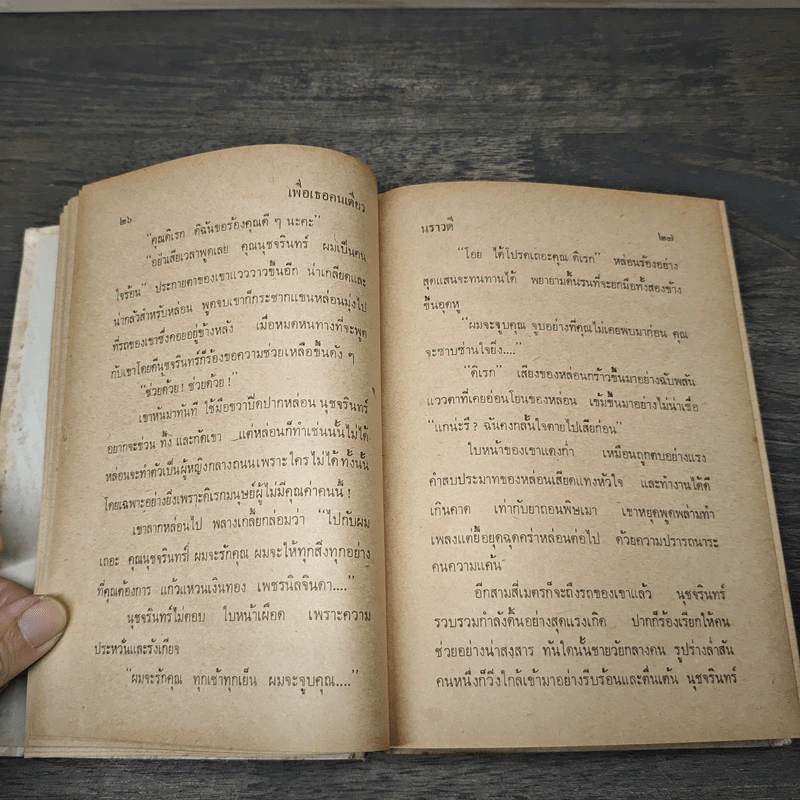 ๒๖
เพื่อเธอคนเดียว
“คุณดิเรก ดิฉันขอร้องคุณดี ๆ นะคะ”
“อย่าเสียเวลาพูดเลย คุณนุชจรินทร์ ผมเป็นคน
ใจร้อน” ประกายตาของเขาแวววาวขึ้นอีก น่าเกลียดและ
น่ากลัวสำหรับหล่อน พูดจบเขาก็กระชากแขนหล่อนมุ่งไป
ที่รถของเขาซึ่งคอยอยู่ข้างหลัง เมื่อหมดหนทางที่จะพูด
กับเขาโดยดีนุชจรินทร์ก็ร้องขอความช่วยเหลือขึ้นดัง ๆ
“ช่วยด้วย! ช่วยด้วย!”
เขาหันมาทันที ใช้มือขวาปิดปากหล่อน นุชจรินทร์
อยากจะข่วน ทึ้ง และกัดเขา แต่หล่อนก็ทำเช่นนั้นไม่ได้
หล่อนจะทำตัวเป็นผู้หญิงกลางถนนเพราะใครไม่ได้ทั้งนั้น
โดยเฉพาะอย่างยิ่งเพราะดิเรกมนุษย์ผู้ไม่มีคุณค่าคนนี้!
เขาลากหล่อนไป พลางเกลี้ยกล่อมว่า “ไปกับผม
เถอะ คุณนุชจรินทร์ ผมจะรักคุณ ผมจะให้ทุกสิ่งทุกอย่าง
ที่คุณต้องการ แก้วแหวนเงินทอง เพชรนิลจินดา....”
นุชจรินทร์ไม่ตอบ ใบหน้าเผือด เพราะความ
ประหวั่นและรังเกียจ
“ผมจะรักคุณ ทุกเช้าทุกเย็น ผมจะจูบคุณ....”
นราวดี
๒๗
“โอย ได้โปรดเถอะคุณ ดิเรก” หล่อนร้องอย่าง
สุดแสนจะทนทานได้ พยายามดิ้นรนที่จะยกมือทั้งสองข้าง
ขึ้นอุดหู
“ผมจะจูบคุณ จูบอย่างที่คุณไม่เคยพบมาก่อน คุณ
จะซาบซ่านใจยิ่ง....”
“ดิเรก” เสียงของหล่อนกร้าวขึ้นมาอย่างฉับพลัน
แววตาที่เคยอ่อนโยนของหล่อน เข้มขึ้นมาอย่างไม่น่าเชื่อ
“แกน่ะรึ? ฉันคงกลั้นใจตายไปเสียก่อน”
ใบหน้าของเขาแดงก่ำ เหมือนถูกตบอย่างแรง
คำสบประมาทของหล่อนเสียดแทงหัวใจ และทำงานได้ดี
เกินคาด เท่ากับยาถอนพิษเมา เขาหยุดพูดพล่ามทำ
เพลงแต่ยื้อยุดฉุดคร่าหล่อนต่อไป ด้วยความปรารถนาระ
คนความแค้น
อีกสามสี่เมตรก็จะถึงรถของเขาแล้ว นุชจรินทร์
รวบรวมกำลังดิ้นอย่างสุดแรงเกิด ปากก็ร้องเรียกให้คน
ช่วยอย่างน่าสงสาร ทันใดนั้นชายวัยกลางคน รูปร่างล่ำสัน
คนหนึ่งก็วิ่งใกล้เข้ามาอย่างรีบร้อนและตื่นเต้น นุชจรินทร์